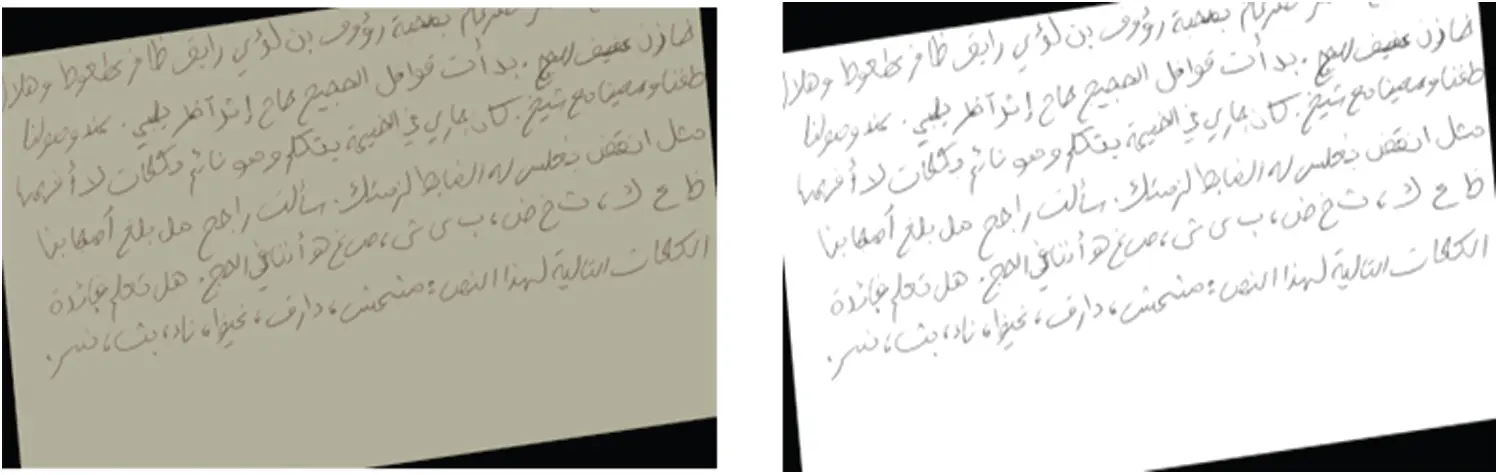 ضرغام بصحبة رؤوف بن لؤي رابق ظافر عطعوط وهلال
خازن عفيف للحج. بدأت قوافل الحجيج حاج إثر آخر يلبي. عند وصولنا
طفنا وسعينا مع شيخ. كان بجاري في الخيمة يتكلم وهو نائم بكلمات لا أفهمها
مثل انقض بخلس له الفاظا لزمتك. سألت راجح هل بلغ أصحابنا
ظ ع ك، ث خ ض، ب ى ش، ص غ هـ أننا في الحج. هل تعلم بفائدة
الكلمات التالية لهذا النص: مشمش، دارف، نحيفا، ناد، بث، نسر.
ضرغام بصحبة رؤوف بن لؤي رابق ظافر عطعوط وهلال
خازن عفيف للحج. بدأت قوافل الحجيج حاج إثر آخر يلبي. عند وصولنا
طفنا وسعينا مع شيخ. كان بجاري في الخيمة يتكلم وهو نائم بكلمات لا أفهمها
مثل انقض بخلس له الفاظا لزمتك. سألت راجح هل بلغ أصحابنا
ظ ع ك، ث خ ض، ب ى ش، ص غ هـ أننا في الحج. هل تعلم بفائدة
الكلمات التالية لهذا النص: مشمش، دارف، نحيفا، ناد، بث، نسر.